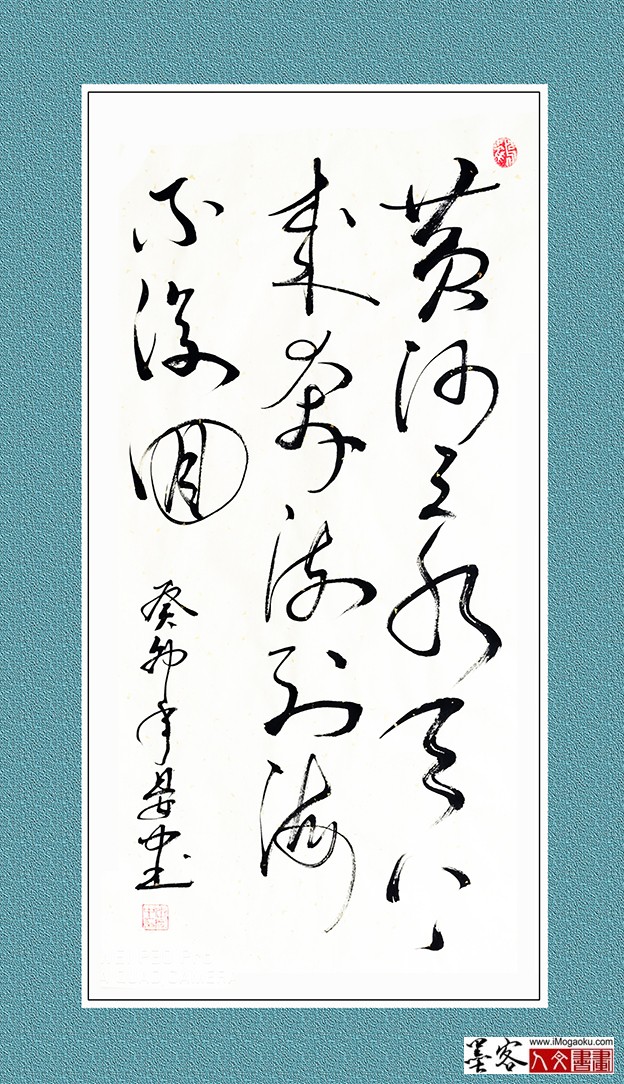 黄河之水天上
来奔流到海
不復回
癸卯年晏
墨客
www.iMogaoku.com
人文書畫